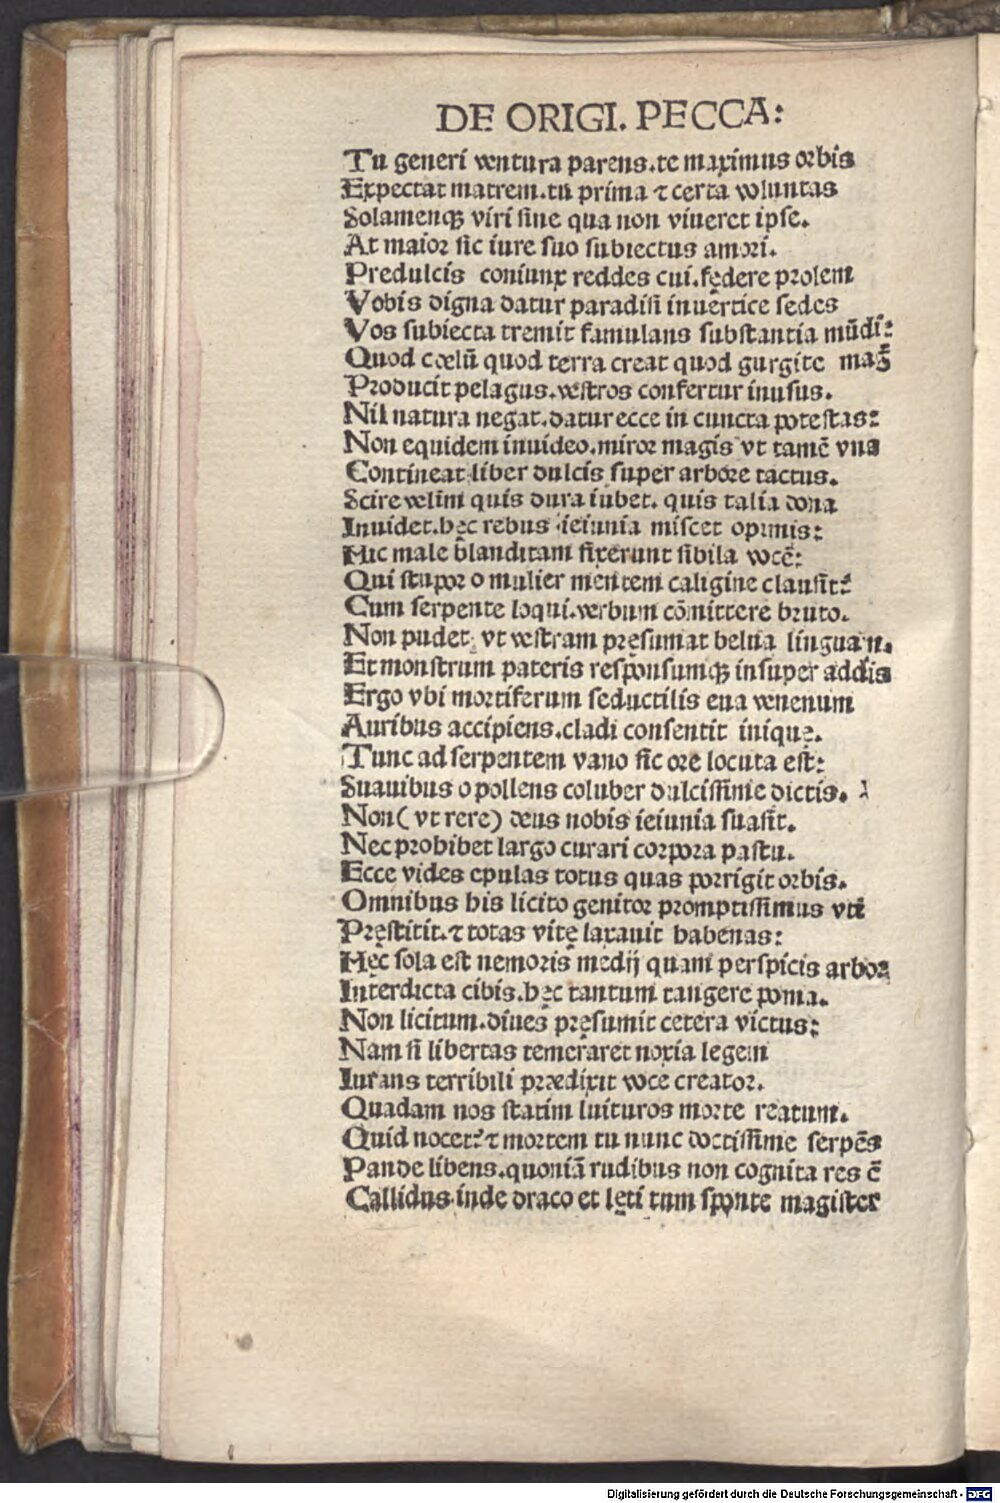 DE ORIGI. PECCA:
Tu generi ventura parens.te maximus orbis
Expectat matrem.tu prima ⁊ certa voluntas
Solamenqꝫ viri sine qua non viueret ipse.
At maior sic iure suo subiectus amori.
Predulcis coniunx reddes cui.fędere prolem
Vobis digna datur paradisi inuertice sedes
Vos subiecta tremit famulans substantia mūdi:
Quod cœlū quod terra creat quod gurgite mag̃
Producit pelagus.vestros confertur inusus.
Nil natura negat.datur ecce in cuncta potestas:
Non equidem inuideo.miror magis vt tamē vna
Contineat liber dulcis super arbore tactus.
Scire velim quis dura iubet. quis talia dona
Inuidet.hęc rebus ieiunia miscet opimis:
Hic male blanditam fixerunt sibila vocē:
Qui stupor o mulier mentem caligine clausit?
Cum serpente loqui.verbum cōmittere bruto.
Non pudet. vt vestram pręsumat belua linguam.
Et monstrum pateris responsumqꝫ insuper addis
Ergo vbi mortiferum seductilis eua venenum
Auribus accipiens.cladi consentit inique.
Tunc ad serpentem vano sic ore locuta est:
Suauibus o pollens coluber dulcissime dictis.
Non (vt rere) deus nobis ieiunia suasit.
Nec prohibet largo curari corpora pastu.
Ecce vides epulas totus quas porrigit orbis.
Omnibus his licito genitor promptissimus vti
Pręstitit.⁊ totas vitę laxauit habenas:
Hęc sola est nemoris medij quam perspicis arbor
Interdicta cibis.hęc tantum tangere poma.
Non licitum.diues pręsumit cetera victus:
Nam si libertas temeraret noxia legem
Iurans terribili prædixit voce creator.
Quadam nos statim luituros morte reatum.
Quid nocet? ⁊ mortem tu nunc doctissime serpēs
Pande libens.quoniā rudibus non cognita res ē
Callidus inde draco et lęti tum sponte magister
Digitalisierung gefördert durch die Deutsche Forschungsgemeinschaft - DFG